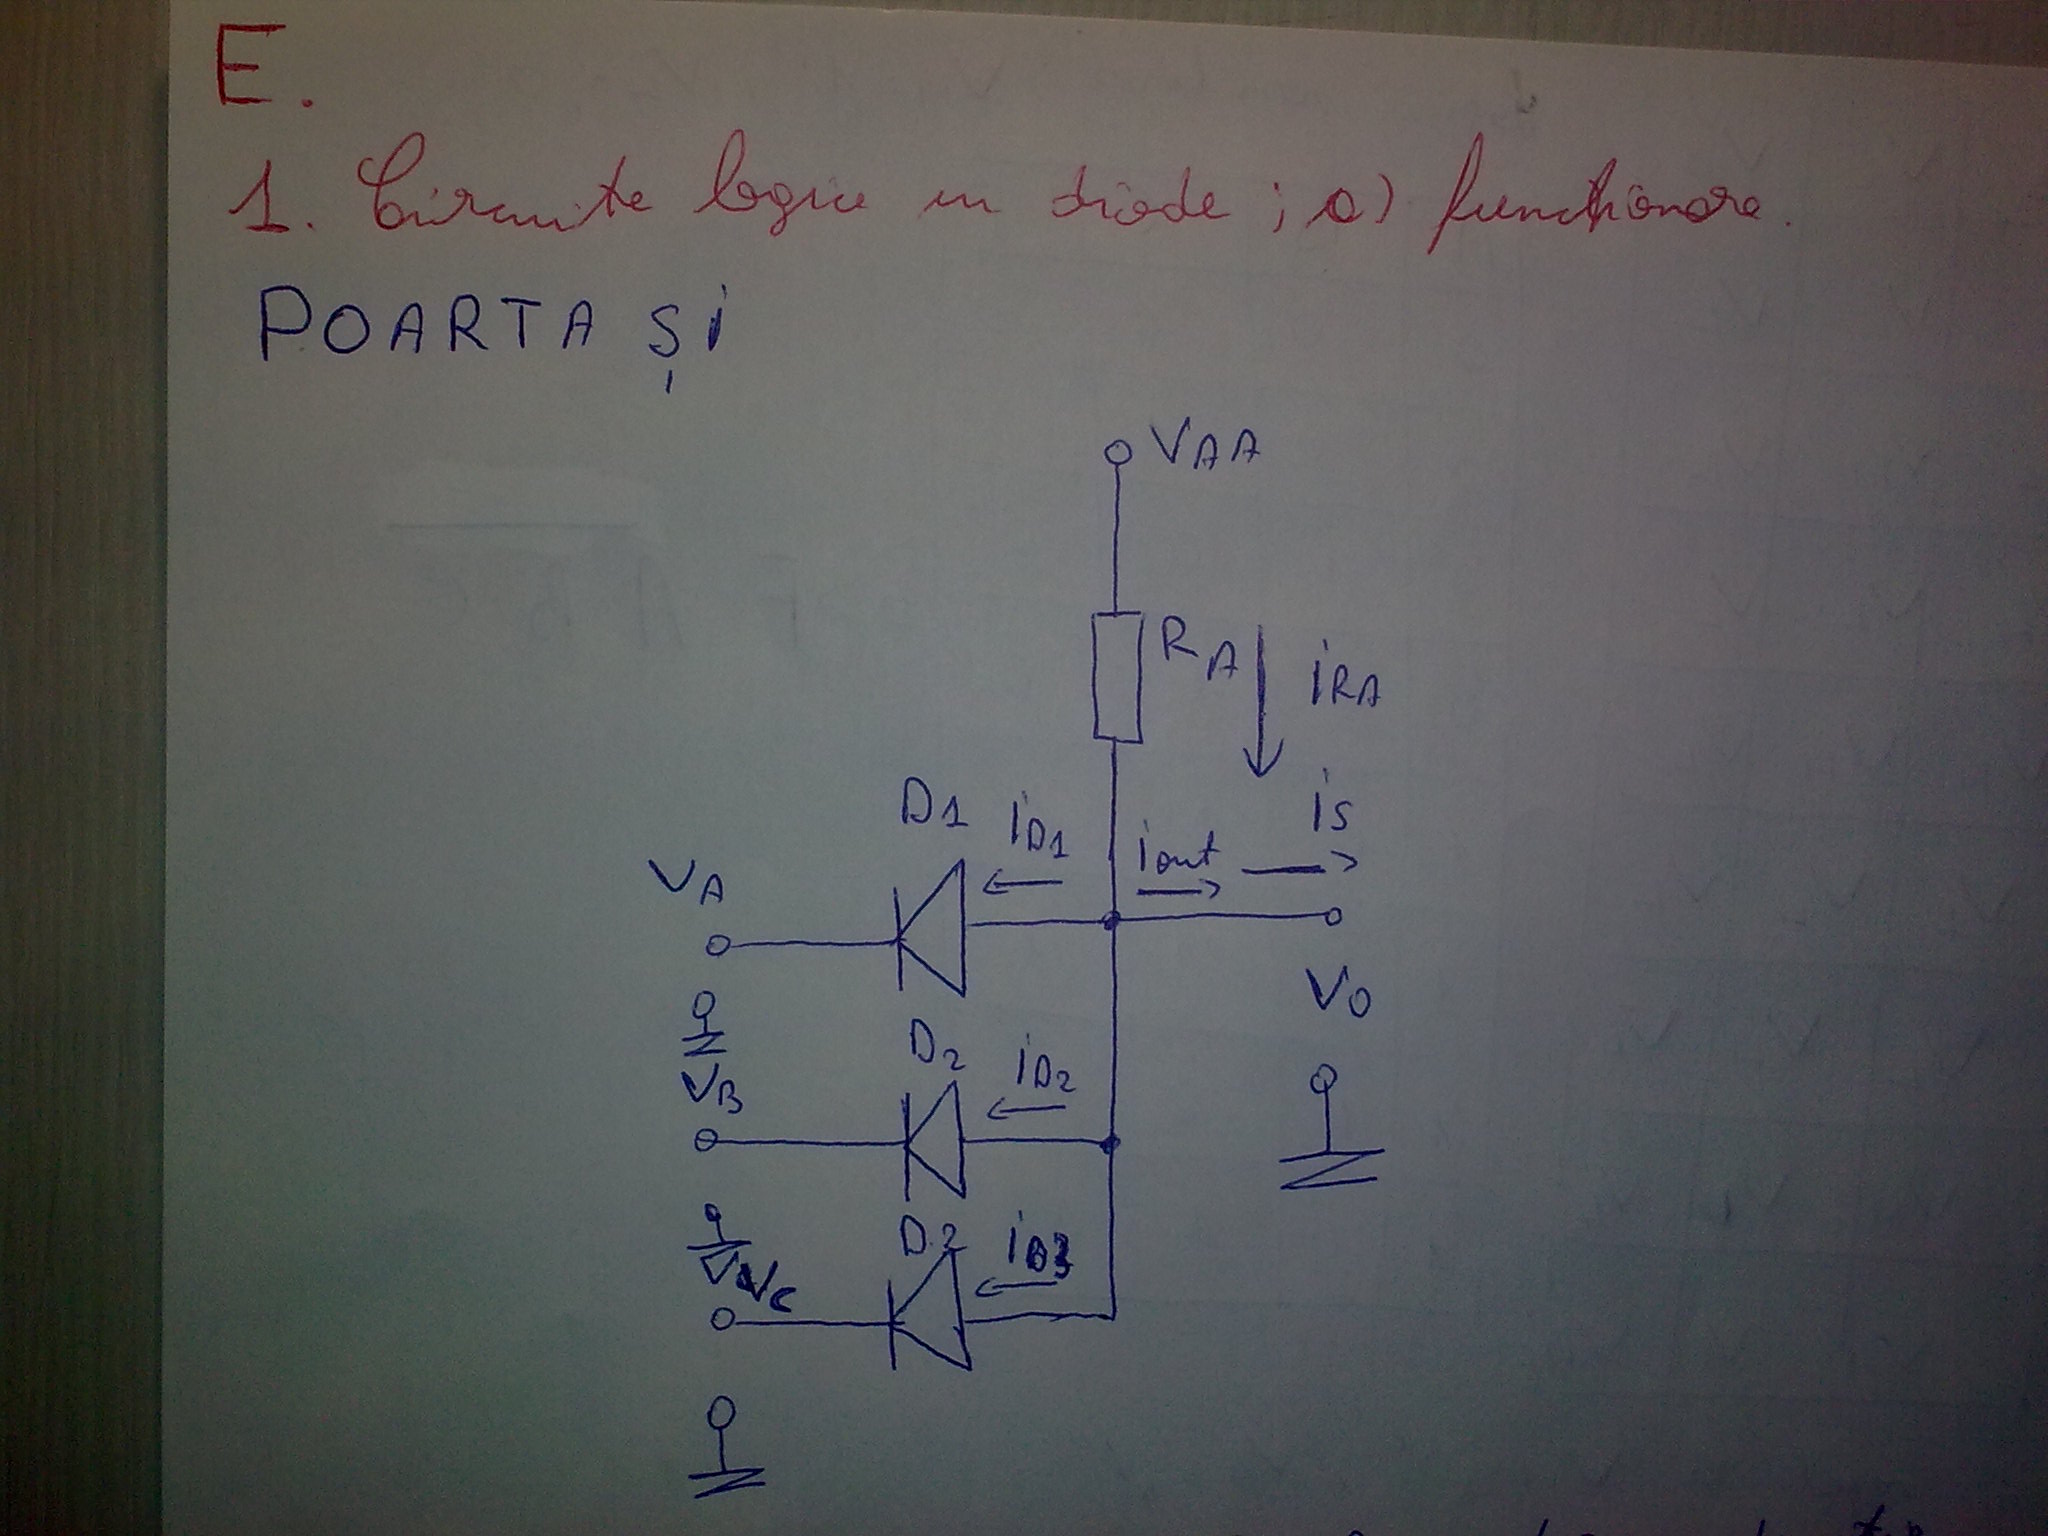 E.
1. Circuite logice cu diode ; a) functionare.
POARTA ȘI
VAA
RA
iRA
D1
iD1
iout
is
VA
VO
D2
iD2
VB
D2
iD3
VC